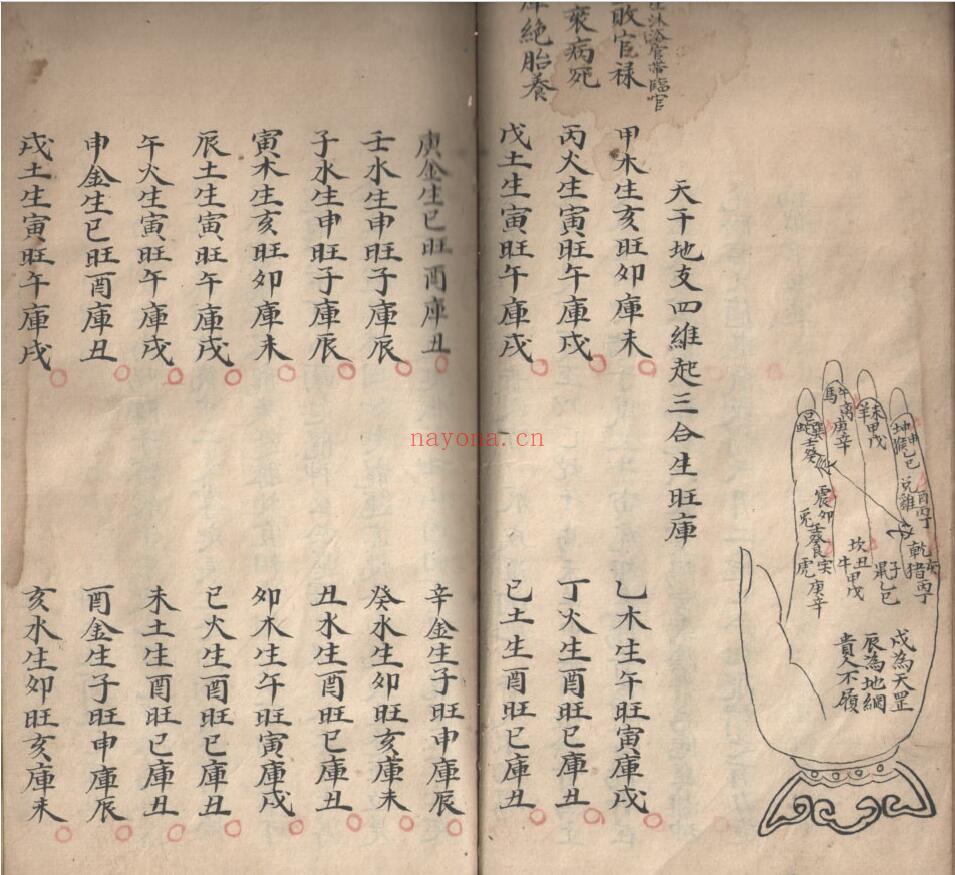 坤申
猴乙巳
兌雞
酉丙丁
乾亥
猪丙丁
未
羊甲戊
午
馬離
庚辛
巽
壬癸
震卯
兔壬癸
艮寅
虎庚辛
坎丑
牛甲戊
子
鼠乙巳
戌為天罡
辰為地網
貴人不履
天干地支四維起三合生旺庫
沐浴官帶臨官
敗官禄
衰病死
絕胎養
甲木生亥旺卯庫未
乙木生午旺寅庫戌
丙火生寅旺午庫戌
丁火生酉旺巳庫丑
戊土生寅旺午庫戌
己土生酉旺巳庫丑
庚金生巳旺酉庫丑
辛金生子旺申庫辰
壬水生申旺子庫辰
癸水生卯旺亥庫未
子水生申旺子庫辰
丑水生酉旺巳庫丑
寅木生亥旺卯庫未
卯木生午旺寅庫戌
辰土生寅旺午庫戌
巳火生酉旺巳庫丑
午火生寅旺午庫戌
未土生酉旺巳庫丑
申金生巳旺酉庫丑
酉金生子旺申庫辰
戌土生寅旺午庫戌
亥水生卯旺亥庫未
nayona.cn